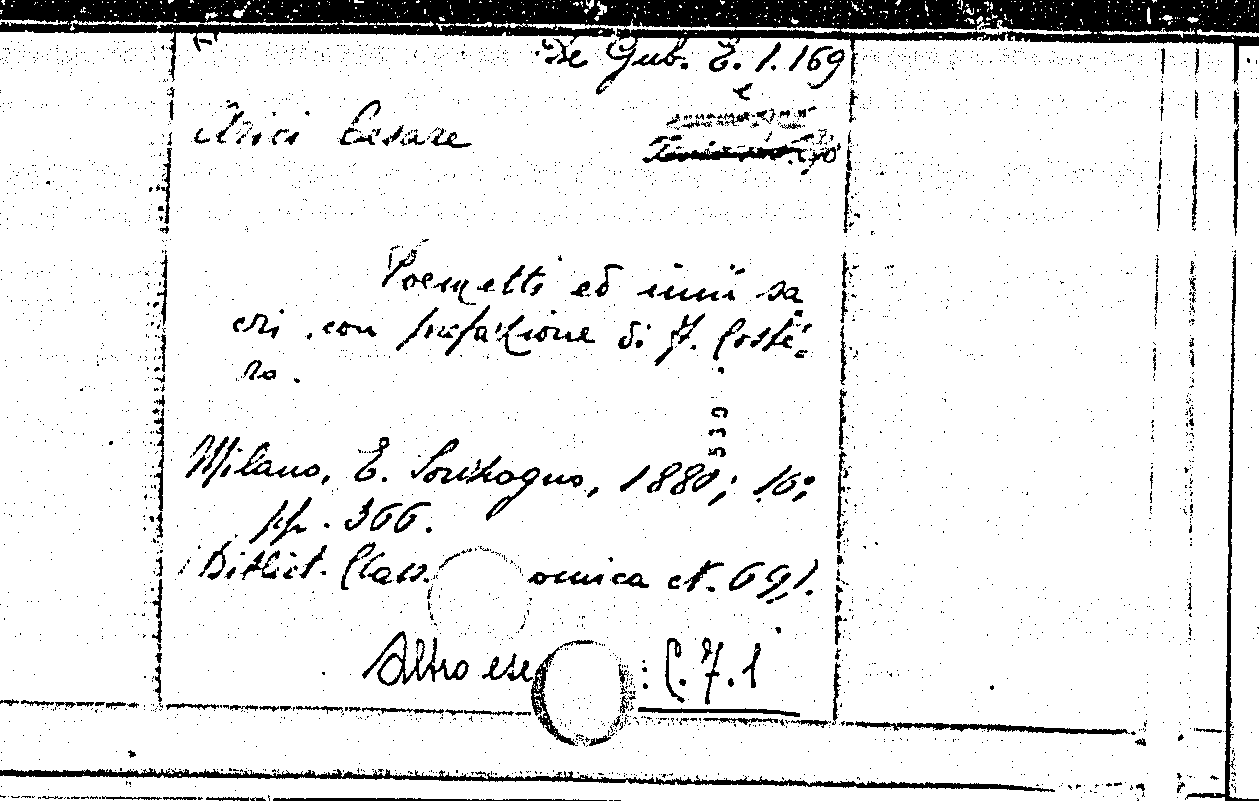 De Gub. E. 1.169
Arici Cesare
Poemetti ed inni sa
cri . con prefazione di F. Coste=
ro.
539
Milano, E. Sonzogno, 1880; 16;
pp. 366.
(Bibliot. Class. omica N. 69).
Altro ese : C.7.1